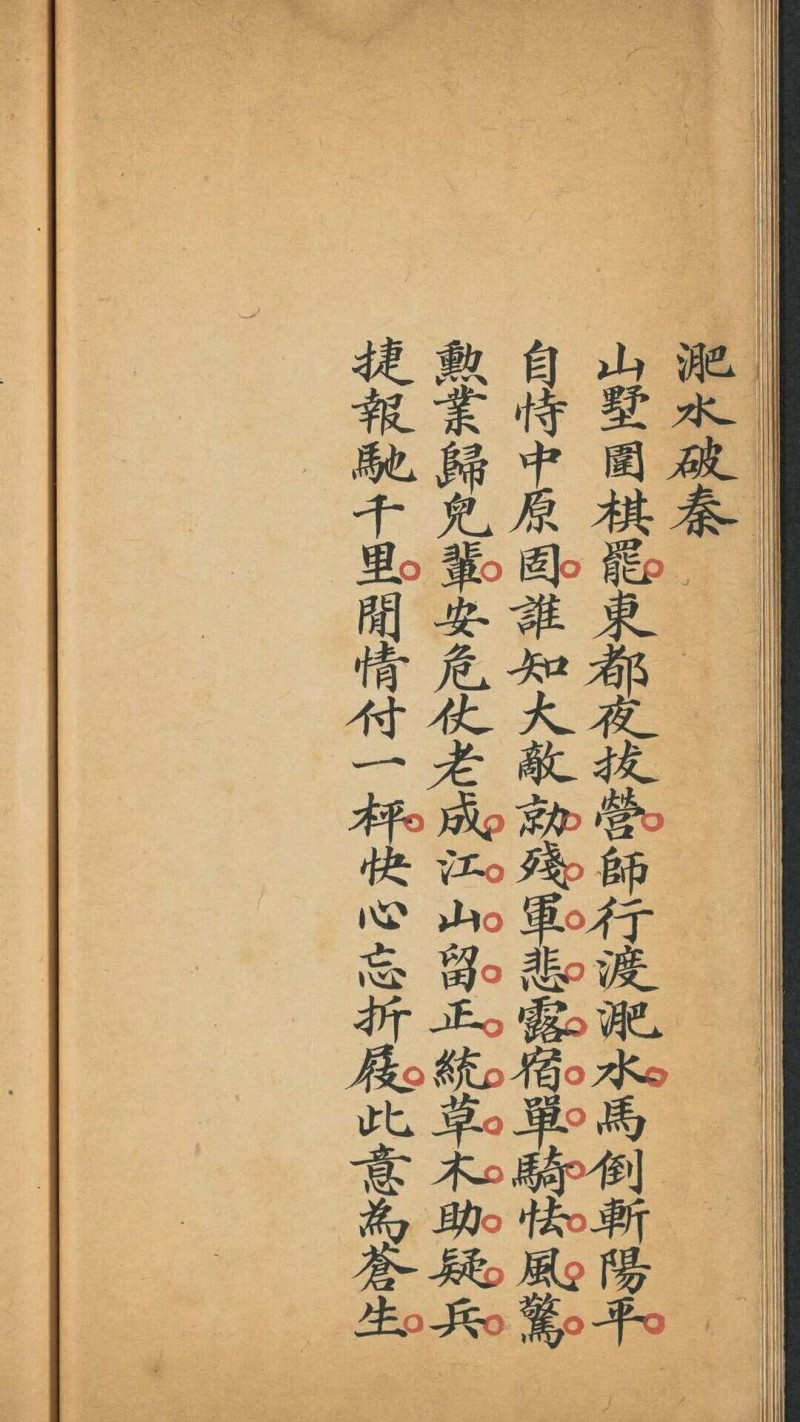 淝水破秦
山墅圍棋罷。東都夜拔營。師行渡淝水。馬倒斬陽平。
自恃中原固。誰知大敵勍。殘。軍。悲。露。宿。單。騎。怯。風。驚。
勲業歸兒輩。安危仗老成。江。山。留。正。統。草。木。助。疑。兵。
捷報馳千里。閒情付一枰。快心忘折屐。此意為蒼生。